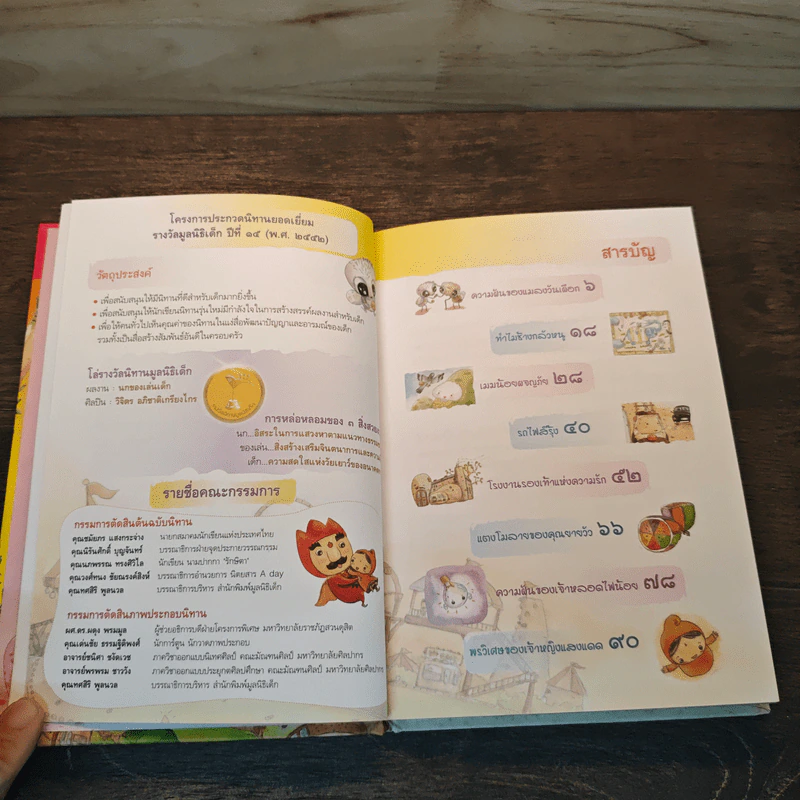 โครงการประกวดนิทานยอดเยี่ยม
รางวัลมูลนิธิเด็ก ปีที่ ๑๕ (พ.ศ. ๒๕๕๒)
วัตถุประสงค์
• เพื่อสนับสนุนให้มีนิทานที่ดีสำหรับเด็กมากยิ่งขึ้น
• เพื่อสนับสนุนให้นักเขียนนิทานรุ่นใหม่มีกำลังใจในการสร้างสรรค์ผลงานสำหรับเด็ก
• เพื่อให้คนทั่วไปเห็นคุณค่าของนิทานในแง่สื่อพัฒนาปัญญาและอารมณ์ของเด็ก
รวมทั้งเป็นสื่อสร้างสัมพันธ์อันดีในครอบครัว
โล่รางวัลนิทานมูลนิธิเด็ก
ผลงาน : นกของเล่นเด็ก
ศิลปิน : วิจิตร อภิชาติเกรียงไกร
การหล่อหลอมของ ๓ สิ่ง
นก...อิสระในการแสวงหาตามแนวทาง
ของเล่น...สิ่งสร้างเสริมจินตนาการและ
เด็ก...ความสดใสแห่งวัยเยาว์ของ
รายชื่อคณะกรรมการ
กรรมการตัดสินต้นฉบับนิทาน
คุณชมัยภร แสงกระจ่าง นายกสมาคมนักเขียนแห่งประเทศไทย
คุณนิรันศักดิ์ บุญจันทร์ บรรณาธิการฝ่ายจุดประกายวรรณกรรม
คุณนภพรรณ ทรงศิวิไล นักเขียน นามปากกา "รักษิตา"
คุณวงศ์ทนง ชัยณรงค์สิงห์ บรรณาธิการอำนวยการ นิตยสาร A day
คุณทศสิริ พูลนวล บรรณาธิการบริหาร สำนักพิมพ์มูลนิธิเด็ก
กรรมการตัดสินภาพประกอบนิทาน
ผศ.ดร.ผดุง พรมมูล ผู้ช่วยอธิการบดีฝ่ายโครงการพิเศษ มหาวิทยาลัยราชภัฏสวนดุสิต
คุณเด่นชัย ธรรมฐิติพงศ์ นักการ์ตูน นักวาดภาพประกอบ
อาจารย์ชนิศา ชงัดเวช ภาควิชาออกแบบนิเทศศิลป์ คณะมัณฑนศิลป์ มหาวิทยาลัยศิลปากร
อาจารย์พรพรม ชาววัง ภาควิชาออกแบบประยุกตศิลปศึกษา คณะมัณฑนศิลป์ มหาวิทยาลัยศิลปากร
คุณทศสิริ พูลนวล บรรณาธิการบริหาร สำนักพิมพ์มูลนิธิเด็ก
สารบัญ
ความฝันของแมลงวันเผือก ๖
ทำไมช้างกลัวหนู ๑๘
เมมน้อยผจญภัย ๒๘
รถไฟสีรุ้ง ๔๐
โรงงานรองเท้าแห่งความรัก ๕๒
แตงโมลายของคุณยายวัว ๖๖
ความฝันของเจ้าหลอดไฟน้อย ๗๘
พรวิเศษของเจ้าหญิงแสงแดด ๙๐